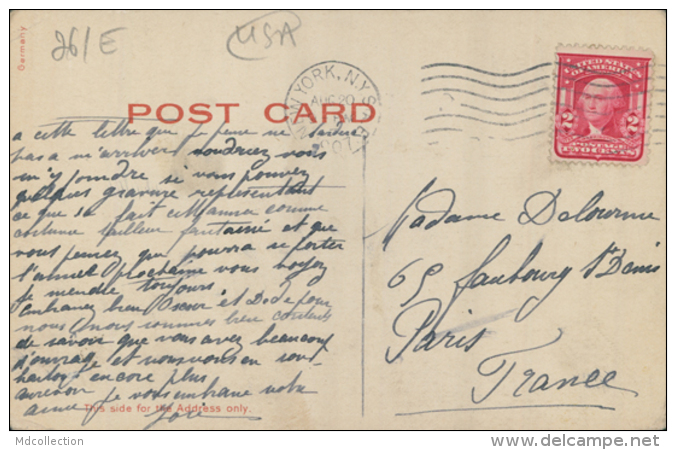 26/E
USA
Germany
NEW YORK, N.Y.
AUG 20
1907
UNITED STATES
OF AMERICA
2 2
POSTAGE
TWO CENTS
POST CARD
a cette lettre que je pense ne
pas a m'arriver voudriez vous
m'y joindre si vous pouvez
quelques gravure representant
ce que se fait cette année comme
costume tailleur fantaisie et que
vous pensez que pourra se porter
l'année prochaine vous voyez
je mendie toujours.
Embrassez bien Oscar et Dédé pour
nous nous sommes bien contents
de savoir que vous avez beaucoup
d'ouvrage et nous vous en
encore plus
au revoir je vous embrasse votre
amie
Madame Delourme
65 faubourg St Denis
Paris
France
This side for the Address only.
Mdcollection
www.delcampe.net